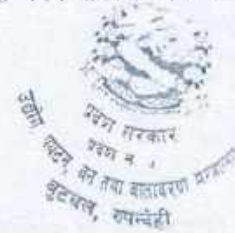 प्रदेश सरकार
प्रदेश नं.
उद्योग, पर्यटन, वन तथा वातावरण मन्त्रालय
बुटवल, रुपन्देही